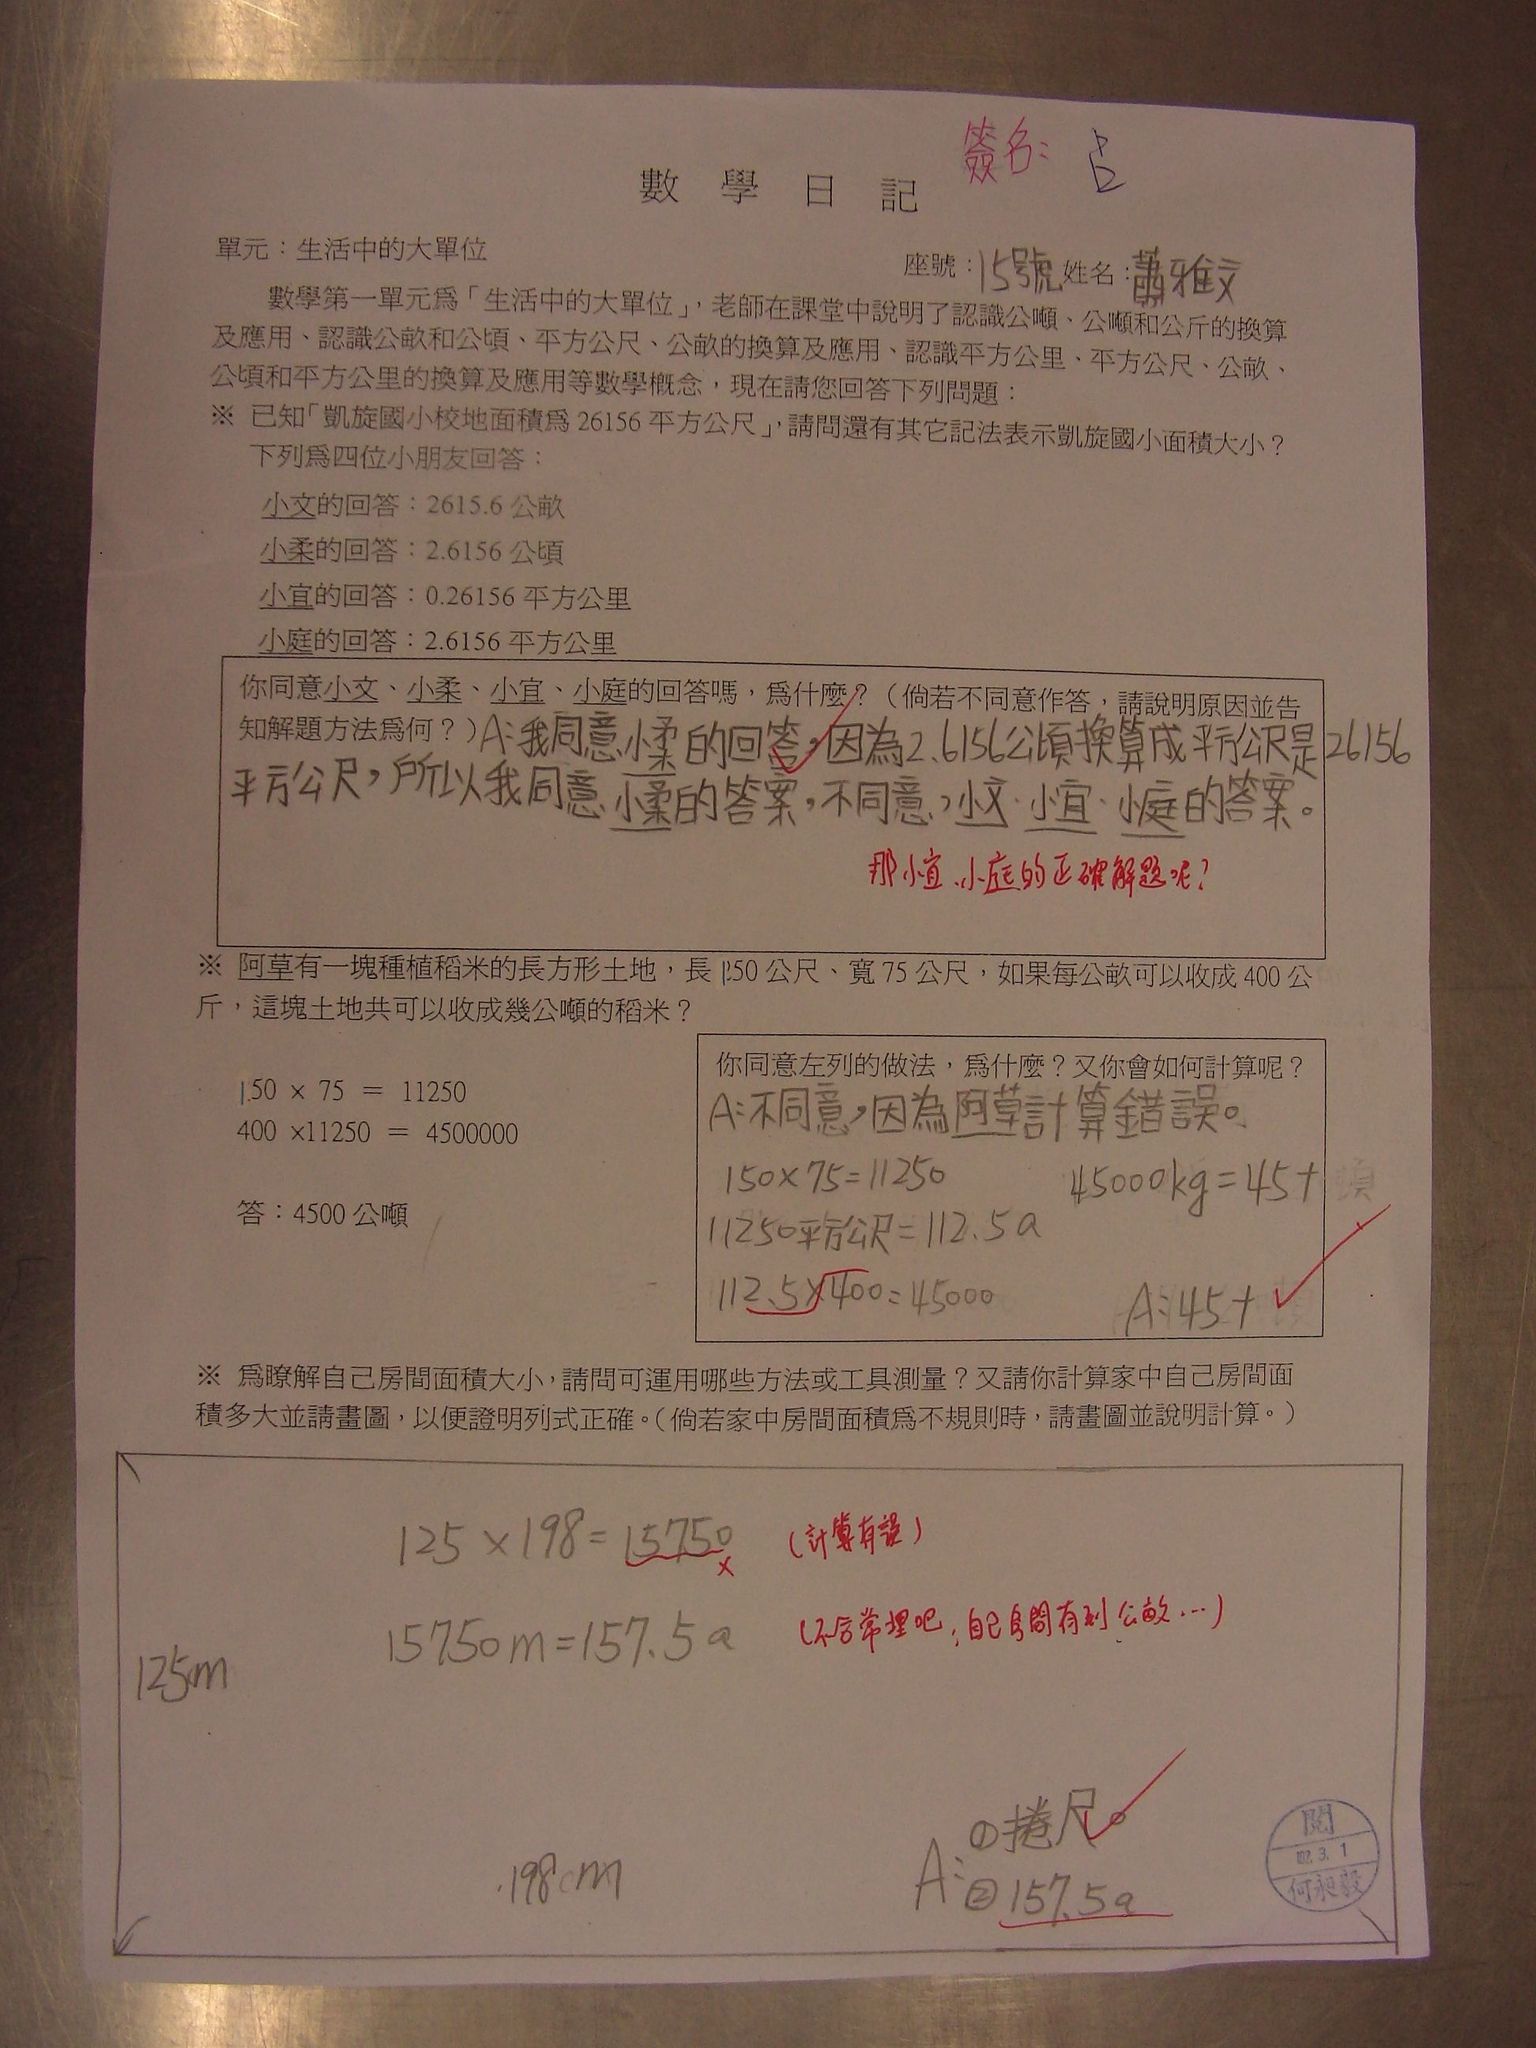 簽名：
數學日記
單元：生活中的大單位
座號：15號 姓名：蕭雅文
數學第一單元為「生活中的大單位」，老師在課堂中說明了認識公噸、公噸和公斤的換算
及應用、認識公畝和公頃、平方公尺、公畝的換算及應用、認識平方公里、平方公尺、公畝、
公頃和平方公里的換算及應用等數學概念，現在請您回答下列問題：
※ 已知「凱旋國小校地面積為 26156 平方公尺」，請問還有其它記法表示凱旋國小面積大小？
下列為四位小朋友回答：
小文的回答：2615.6 公畝
小柔的回答：2.6156 公頃
小宜的回答：0.26156 平方公里
小庭的回答：2.6156 平方公里
你同意小文、小柔、小宜、小庭的回答嗎，為什麼？（倘若不同意作答，請說明原因並告
知解題方法為何？）A：我同意小柔的回答，因為2.6156公頃換算成平方公尺是26156
平方公尺，所以我同意小柔的答案，不同意，小文、小宜、小庭的答案。
那小宜、小庭的正確解題呢？
※ 阿草有一塊種植稻米的長方形土地，長 150 公尺、寬 75 公尺，如果每公畝可以收成 400 公
斤，這塊土地共可以收成幾公噸的稻米？
150 × 75 = 11250
400 ×11250 = 4500000
答：4500 公噸
你同意左列的做法，為什麼？又你會如何計算呢？
A：不同意，因為阿草計算錯誤。
150×75=11250
45000kg=45t
11250平方公尺=112.5a
112.5×400=45000
A：45t
※ 為瞭解自己房間面積大小，請問可運用哪些方法或工具測量？又請你計算家中自己房間面
積多大並請畫圖，以便證明列式正確。（倘若家中房間面積為不規則時，請畫圖並說明計算。）
125×198=15750
(計算有誤)
15750m=157.5a
(不合常理吧，自己房間有到公畝…)
125m
198cm
A：①捲尺。
②157.5a
閱
102.3.1
何昶毅